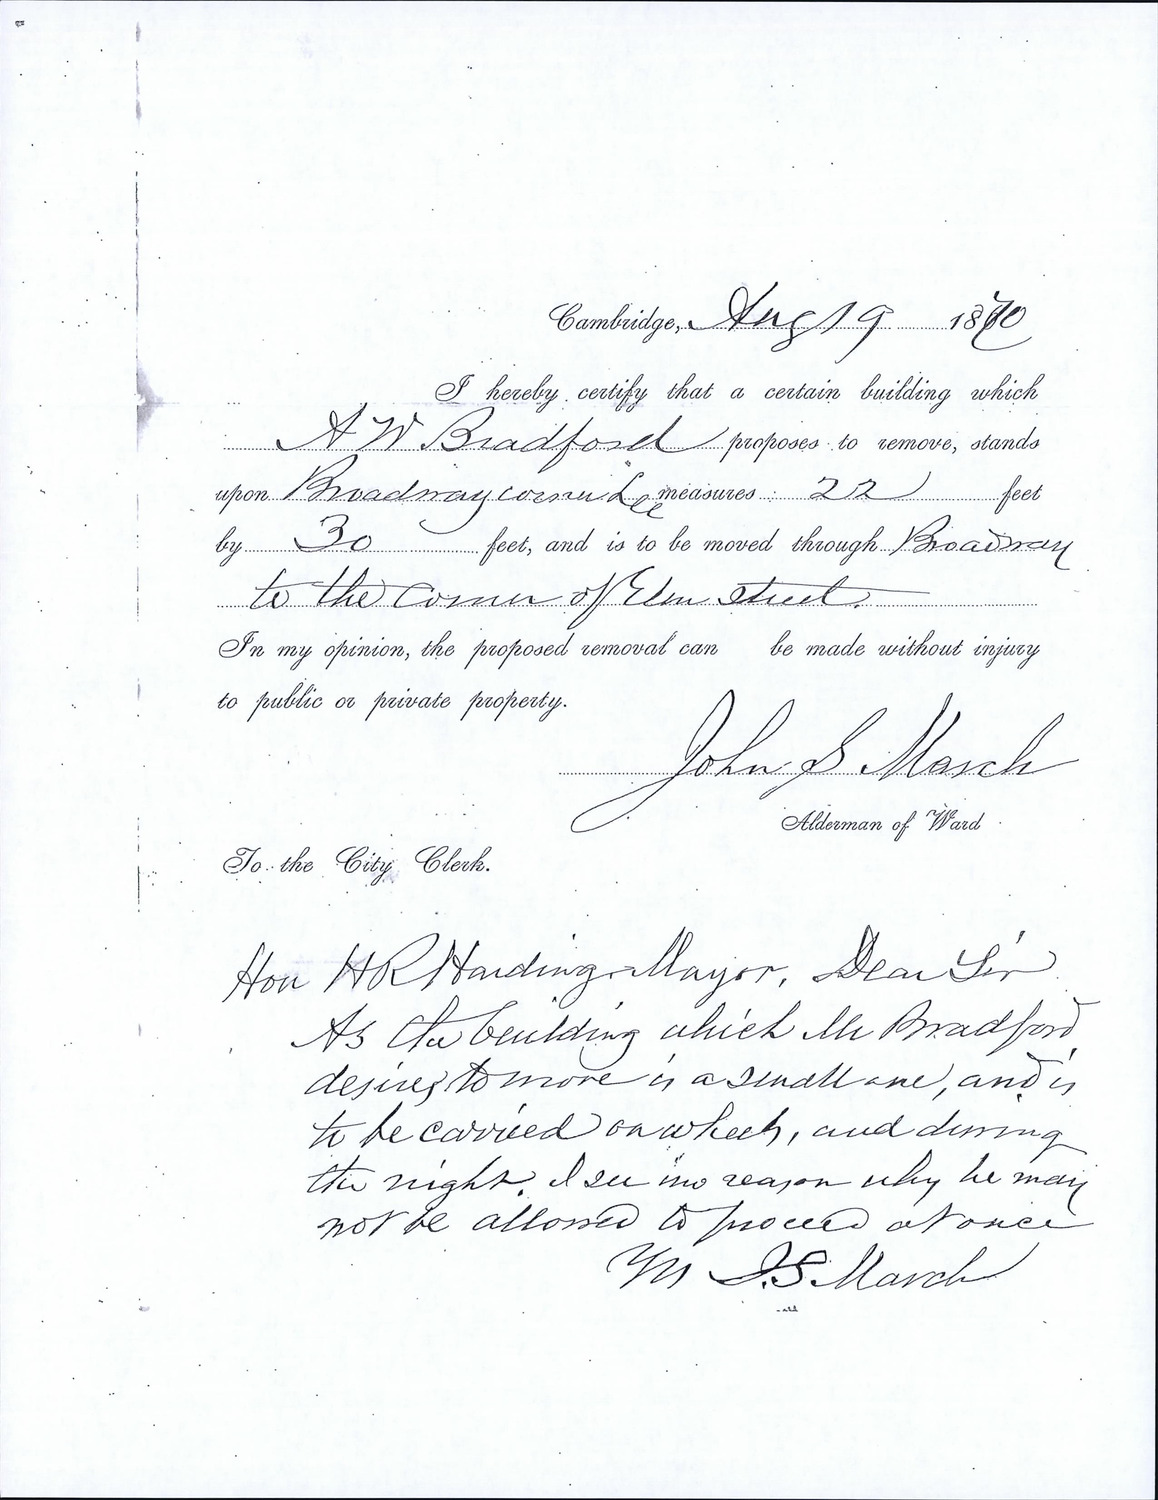 Cambridge, Aug 19 1870
I hereby certify that a certain building which
A W Bradford proposes to remove, stands
upon Broadway corner Lee measures 22 feet
by 30 feet, and is to be moved through Broadway
to the corner of Elm Street.
In my opinion, the proposed removal can be made without injury
to public or private property.
John S March
Alderman of Ward
To the City Clerk.
Hon H R Harding Mayor, Dear Sir
As the building which Mr Bradford
desires to move is a small one, and is
to be carried on wheels, and during
the night. I see no reason why he may
not be allowed to proceed at once
J. S. March